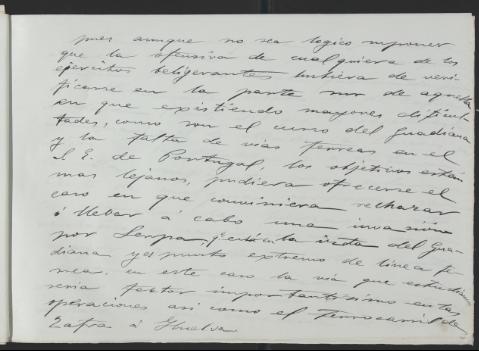 pues aunque no sea logico suponer
que la ofensiva de cualquiera de los
ejercitos beligerantes hubiera de veri-
ficarse en la parte sur de aquella
en que existiendo mayores dificul-
tades, como son el curso del Guadiana
y la falta de vias ferreas en el
S. E. de Portugal, los objetivos están
mas lejanos, pudiera ofrecerse el
caso en que conviniera rechazar
ó llevar á cabo una invasión
por Serpa, sita en la orilla izda del Gua-
diana y es punto extremo de linea fe-
rrea. en este caso la via que estudiamos
seria factor importantisimo en las
operaciones asi como el ferrocarril de
Zafra á Huelva